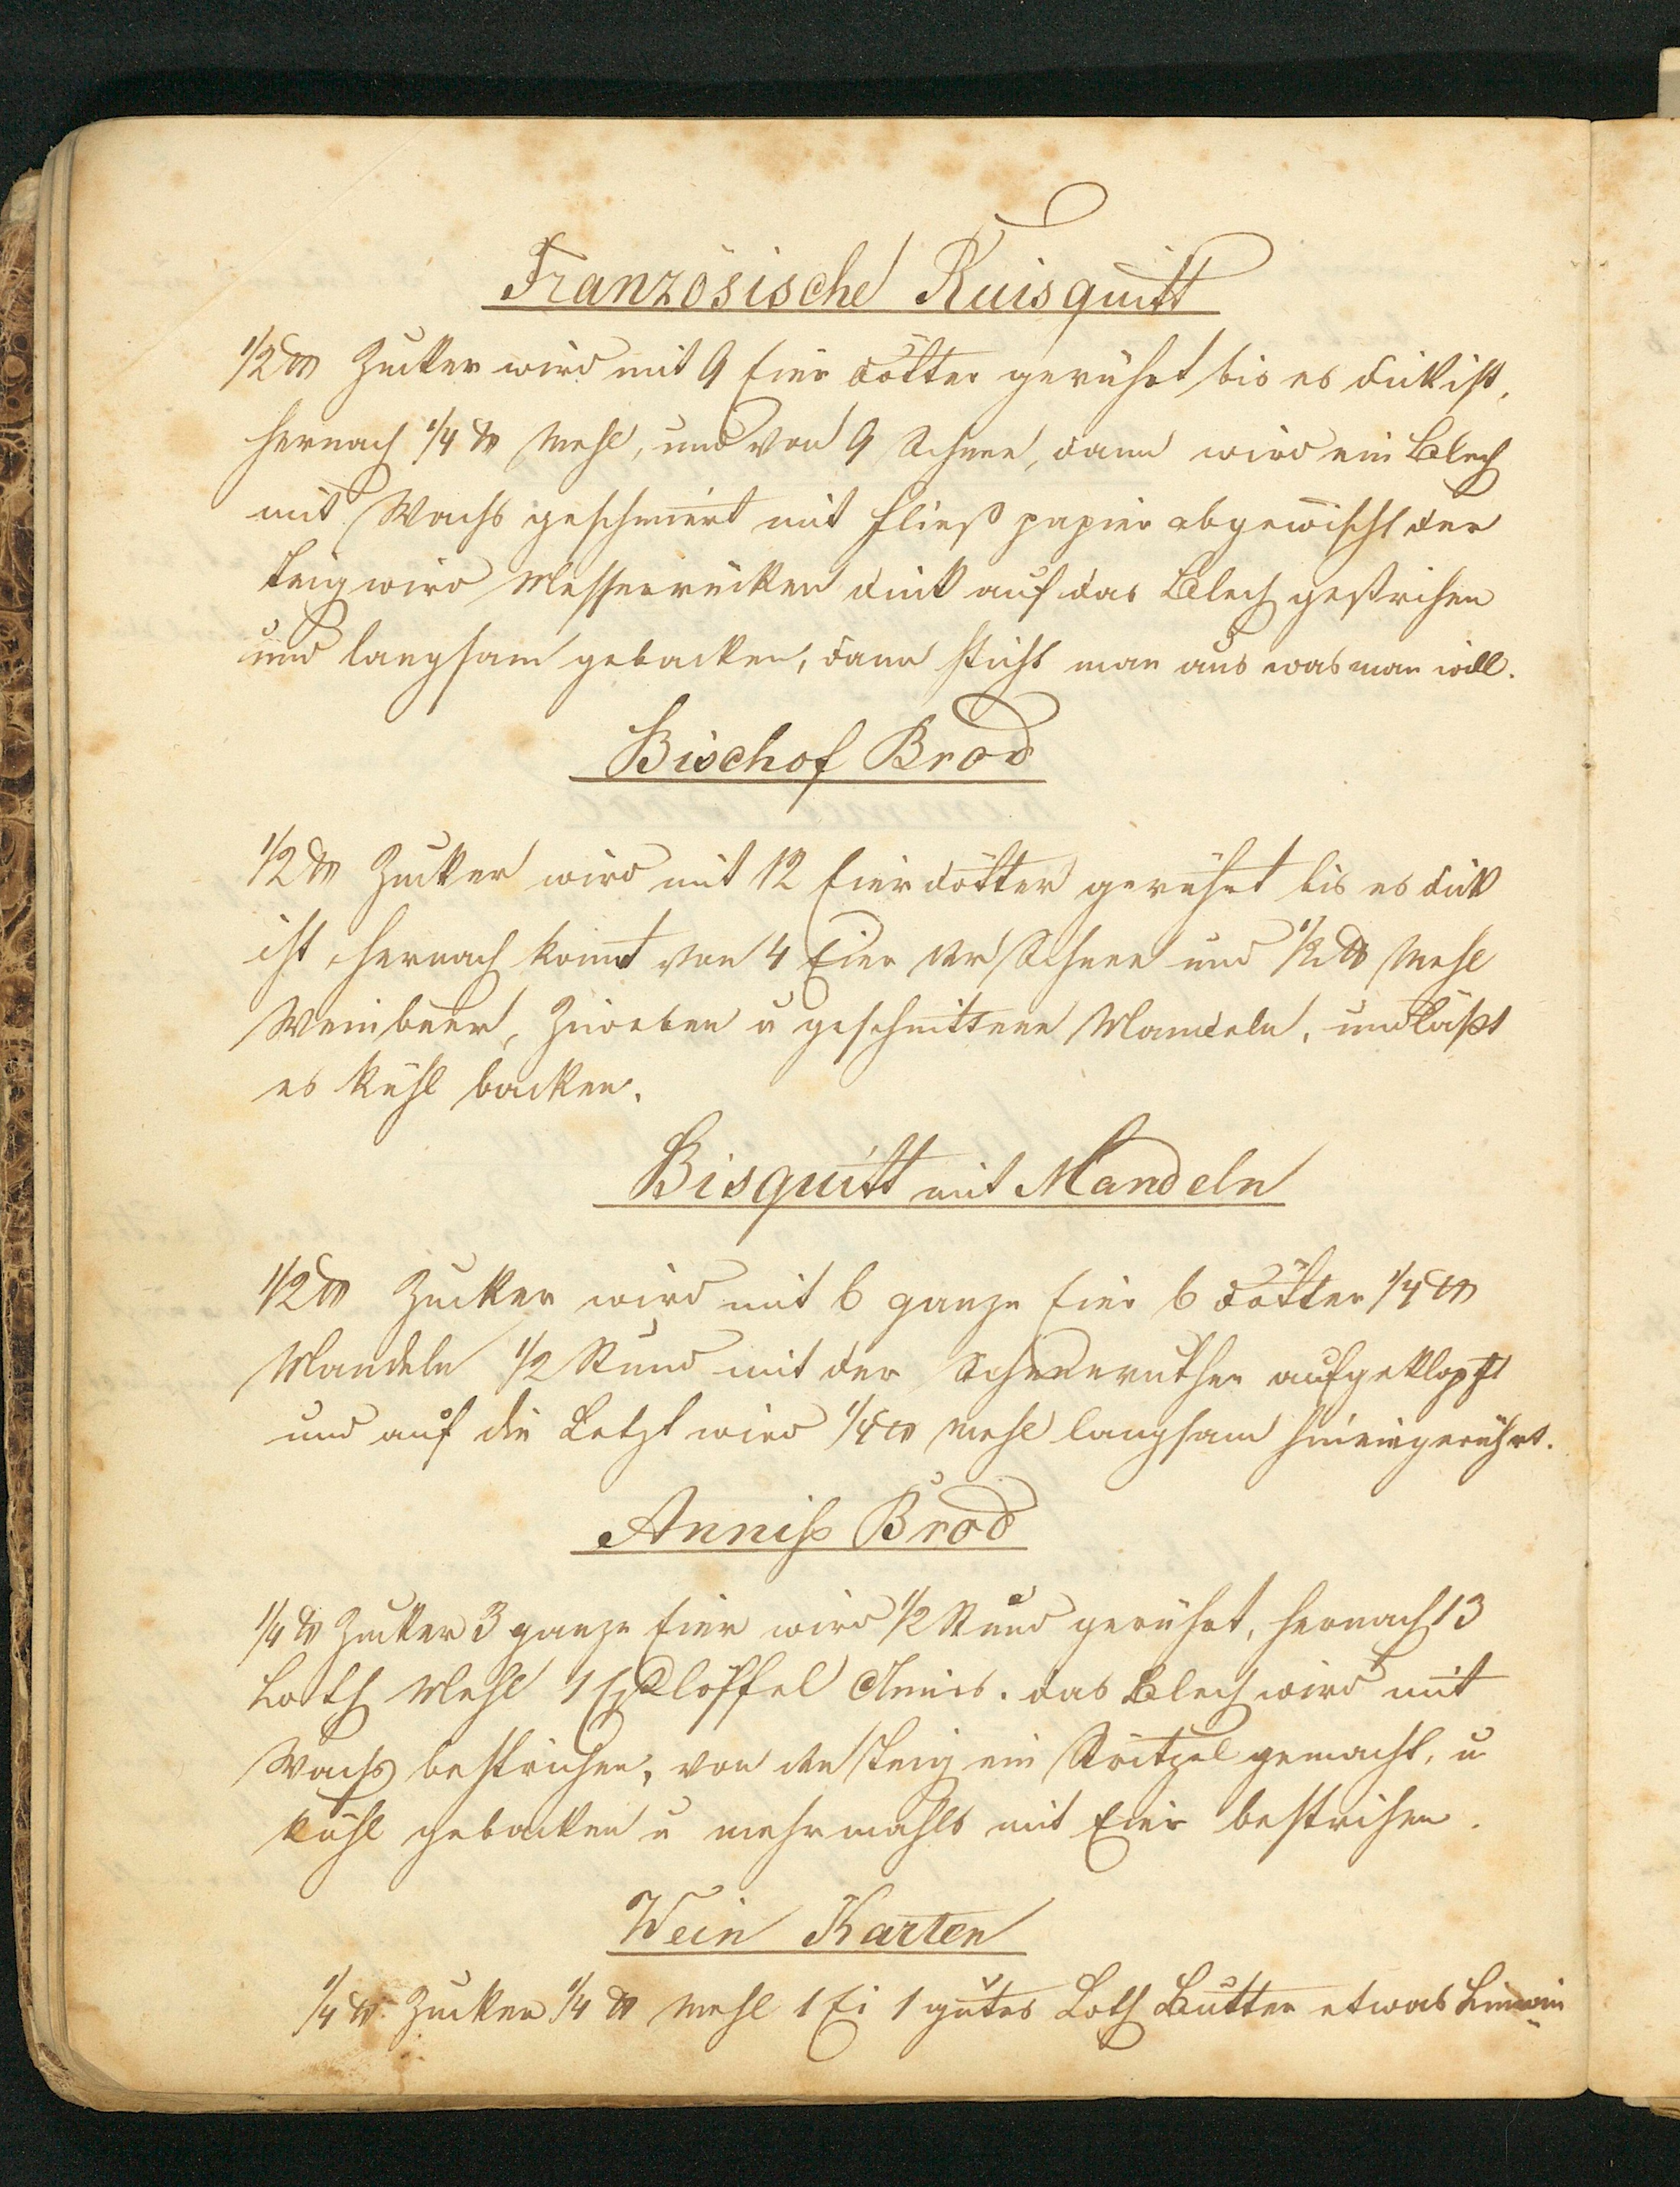 Französische Kuisquitt
1/2 ℔ Zucker wird mit 9 Eier Dötter gerührt bis es dick ist,
hernach 1/4 ℔ Mehl, und von 9 Schnee, dann wird ein Blech
mit Wachs geschmiert mit Fließ papier abgewischt der
Teig wird Messerrücken dick auf das Blech gestrichen
und langsam gebacken, dann sticht man aus was man will.
Bischof Brod
1/2 ℔ Zucker wird mit 12 Eierdötter gerührt bis es dick
ist, hernach komt von 4 Eier der Schnee und 1/2 ℔ Mehl
Weinbeer, Zweben u geschnittene Mandeln, und läßt
es kühl backen.
Bisquitt mit Mandeln
1/2 ℔ Zucker wird mit 6 ganze Eier 6 Dötter 1/4 ℔
Mandeln 1/2 Stund mit der Schneeruthen aufgeklopft
und auf die Letzt wird 1/4 ℔ Mehl langsam hineingerührt.
Anniß Brod
1/4 ℔ Zucker 3 ganze Eier wird 1/2 Stund gerührt, hernach 13
Loth Mehl 1 Eßlöffel Annis. das Blech wird mit
Wachs bestrichen, von den Teig ein Stritzel gemacht, u
kühl gebacken u mehrmahls mit Eier bestrichen.
Wein Karten
1/4 ℔ Zucker 1/4 ℔ Mehl 1 Ei 1 gutes Loth Butter etwas